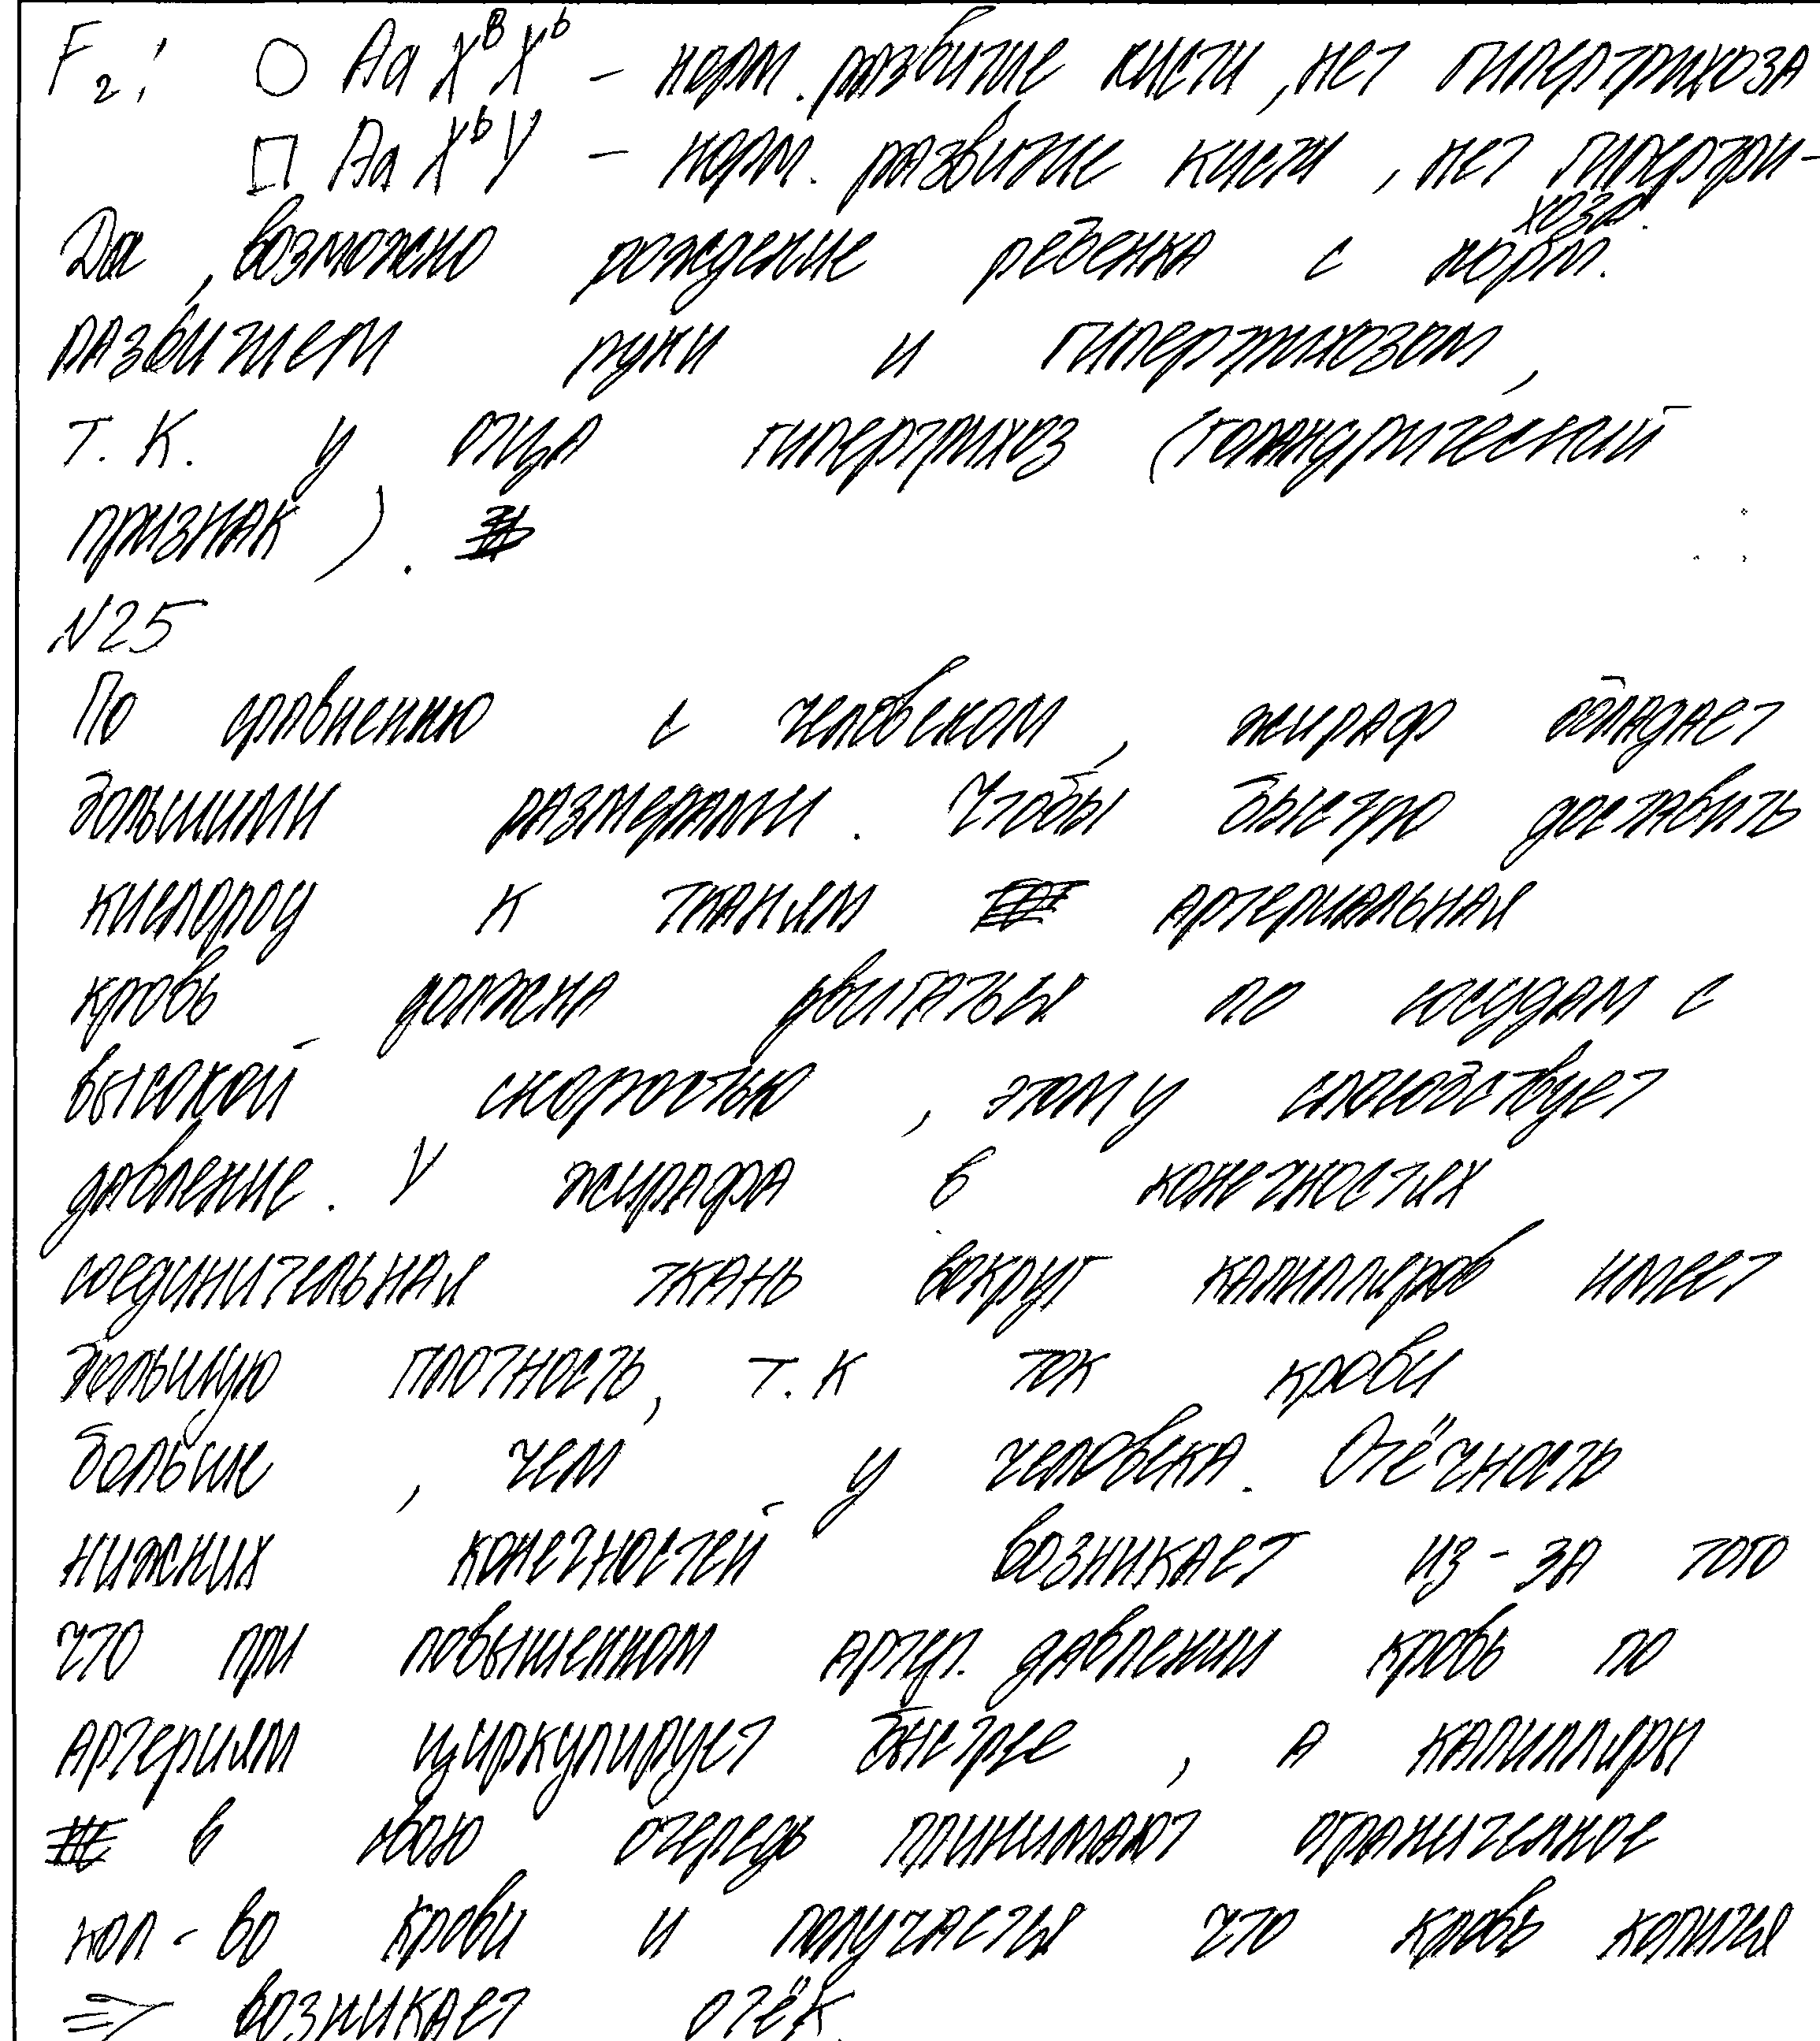 F₂: ○ Aa XᴮXᵇ – норм. развитие кисти, нет гипертрихоза
□ Aa XᵇY – норм. развитие кисти, нет гипертри-
хоза.
Да, возможно рождение ребёнка с норм.
развитием руки и гипертрихозом,
т.к. у отца гипертрихоз (голандрический
признак).
N25
По сравнению с человеком, жираф обладает
большими размерами. Чтобы быстро доставить
кислород к тканям артериальная
кровь должна двигаться по сосудам с
высокой скоростью, этому способствует
давление. У жирафа в конечностях
соединительная ткань вокруг капилляров имеет
большую плотность, т.к ток крови
больше, чем у человека. Отёчность
нижних конечностей возникает из-за того
что при повышенном артер. давлении кровь по
артериям циркулирует быстрее, а капилляры
в свою очередь принимают ограниченное
кол-во крови и получается что кровь копится
=> возникает отёк.